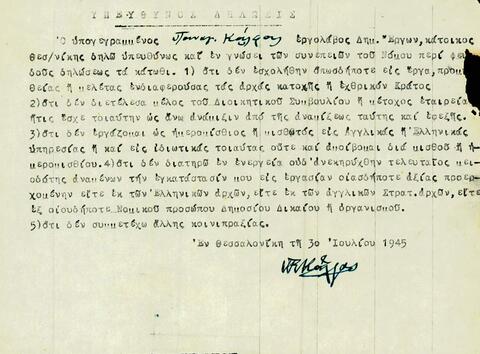 ΥΠΕΥΘΥΝΟΣ ΔΗΛΩΣΙΣ
Ὁ ὑπογεγραμμένος Παναγ. Κάλφας ἐργολάβος Δημ. Ἔργων, κάτοικος
Θεσ/νίκης δηλῶ ὑπευθύνως καί ἐν γνώσει τῶν συνεπειῶν τοῦ Νόμου περί ψευ
δοῦς δηλώσεως τά κάτωθι. 1) ὅτι δέν ἐσχολήθην ὁπωσδήποτε εἰς ἔργα, προμη
θείας ἤ μελέτας ἐνδιαφερούσας τάς ἀρχάς κατοχῆς ἤ ἐχθρικόν Κράτος
2)ὅτι δέν διετέλεσα μέλος τοῦ Διοικητικοῦ Συμβουλίου ἤ μέτοχος ἑταιρεία
ἥτις ἔσχε τοιαύτην ὡς ἄνω ἀνάμιξιν ἀπό τῆς ἀναμίξεως ταύτης καί ἐφεξῆς.
3)ὅτι δέν ἐργάζομαι ὡς ἡμερομίσθιος ἤ μισθωτός εἰς Ἀγγλικάς ἤ Ἑλληνικάς
ὑπηρεσίας ἤ καί εἰς ἰδιωτικάς τοιαύτας οὔτε καί ἀμοίβομαι διά μισθοῦ ἤ ἡ
μερομισθίου. 4)ὅτι δέν διατηρῶ ἐν ἐνεργεία οὐδ'ἀνεκηρύχθην τελευταῖος μειο
δότης ἀναμένων τήν ἐγκατάστασίν μου εἰς ἐργασίαν οἱασδήποτε ἀξίας προερ
χομένην εἴτε ἐκ τῶν Ἑλληνικῶν ἀρχῶν, εἴτε ἐκ τῶν ἀγγλικῶν Στρατ. ἀρχῶν, εἴτε
ἐξ οἱουδήποτε Νομικοῦ προσώπου Δημοσίου Δικαίου ἤ ὀργανισμοῦ.
5)ὅτι δέν συμμετέχω ἄλλης κοινιπραξίας.
Ἐν Θεσσαλονίκη τῇ 3ο Ἰουλίου 1945